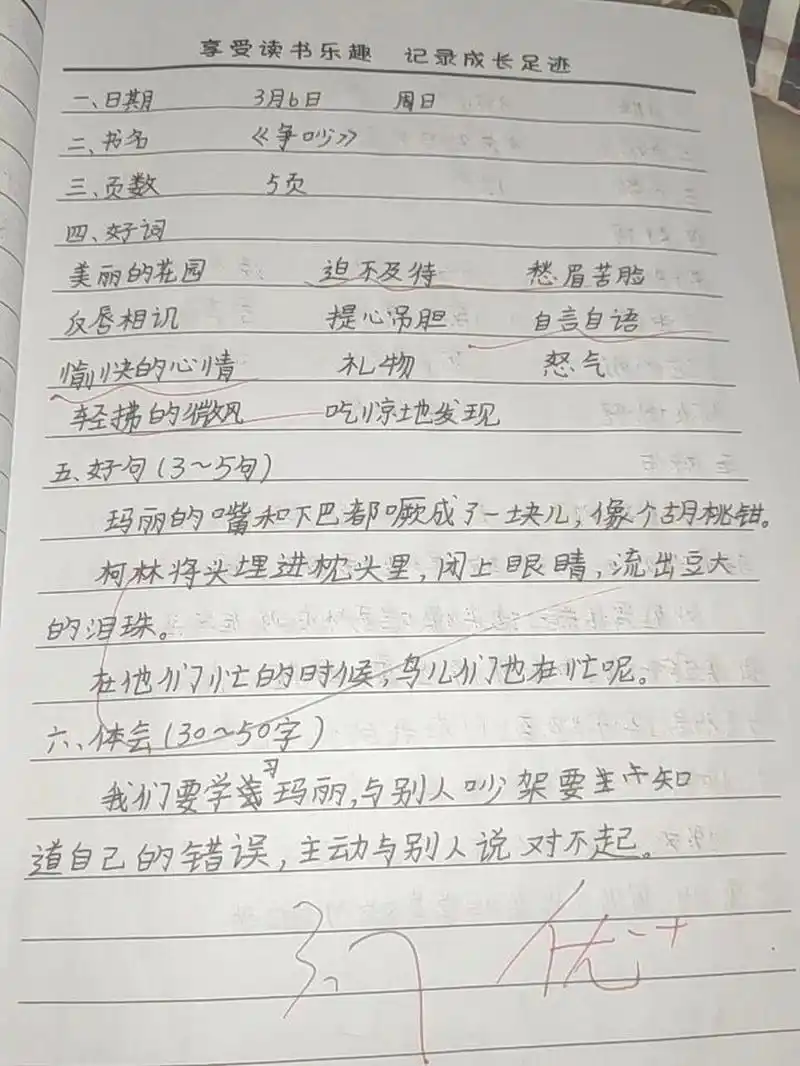 享受读书乐趣 记录成长足迹
一、日期 3月6日 周日
二、书名 《争吵》
三、页数 5页
四、好词
美丽的花园 迫不及待 愁眉苦脸
反唇相讥 提心吊胆 自言自语
愉快的心情 礼物 怒气
轻拂的微风 吃惊地发现
五、好句(3～5句)
玛丽的嘴和下巴都噘成了一块儿，像个胡桃钳。
柯林将头埋进枕头里，闭上眼睛，流出豆大
的泪珠。
在他们忙的时候，鸟儿们也在忙呢。
六、体会(30～50字)
我们要学习玛丽，与别人吵架要知
道自己的错误，主动与别人说对不起。
3.7 优++